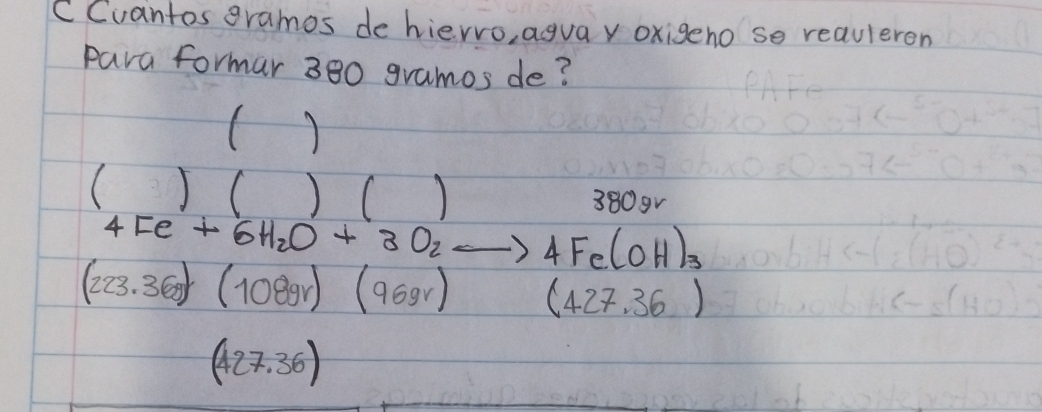 C Cuantos gramos de hierro, agua y oxigeno se requieren
Para formar 380 gramos de?
( )
( ) ( ) ( ) 380gr
4Fe + 6H₂O + 3O₂ → 4Fe(OH)₃
(223.36g) (108gr) (96gr) (427.36 )
(427.36)